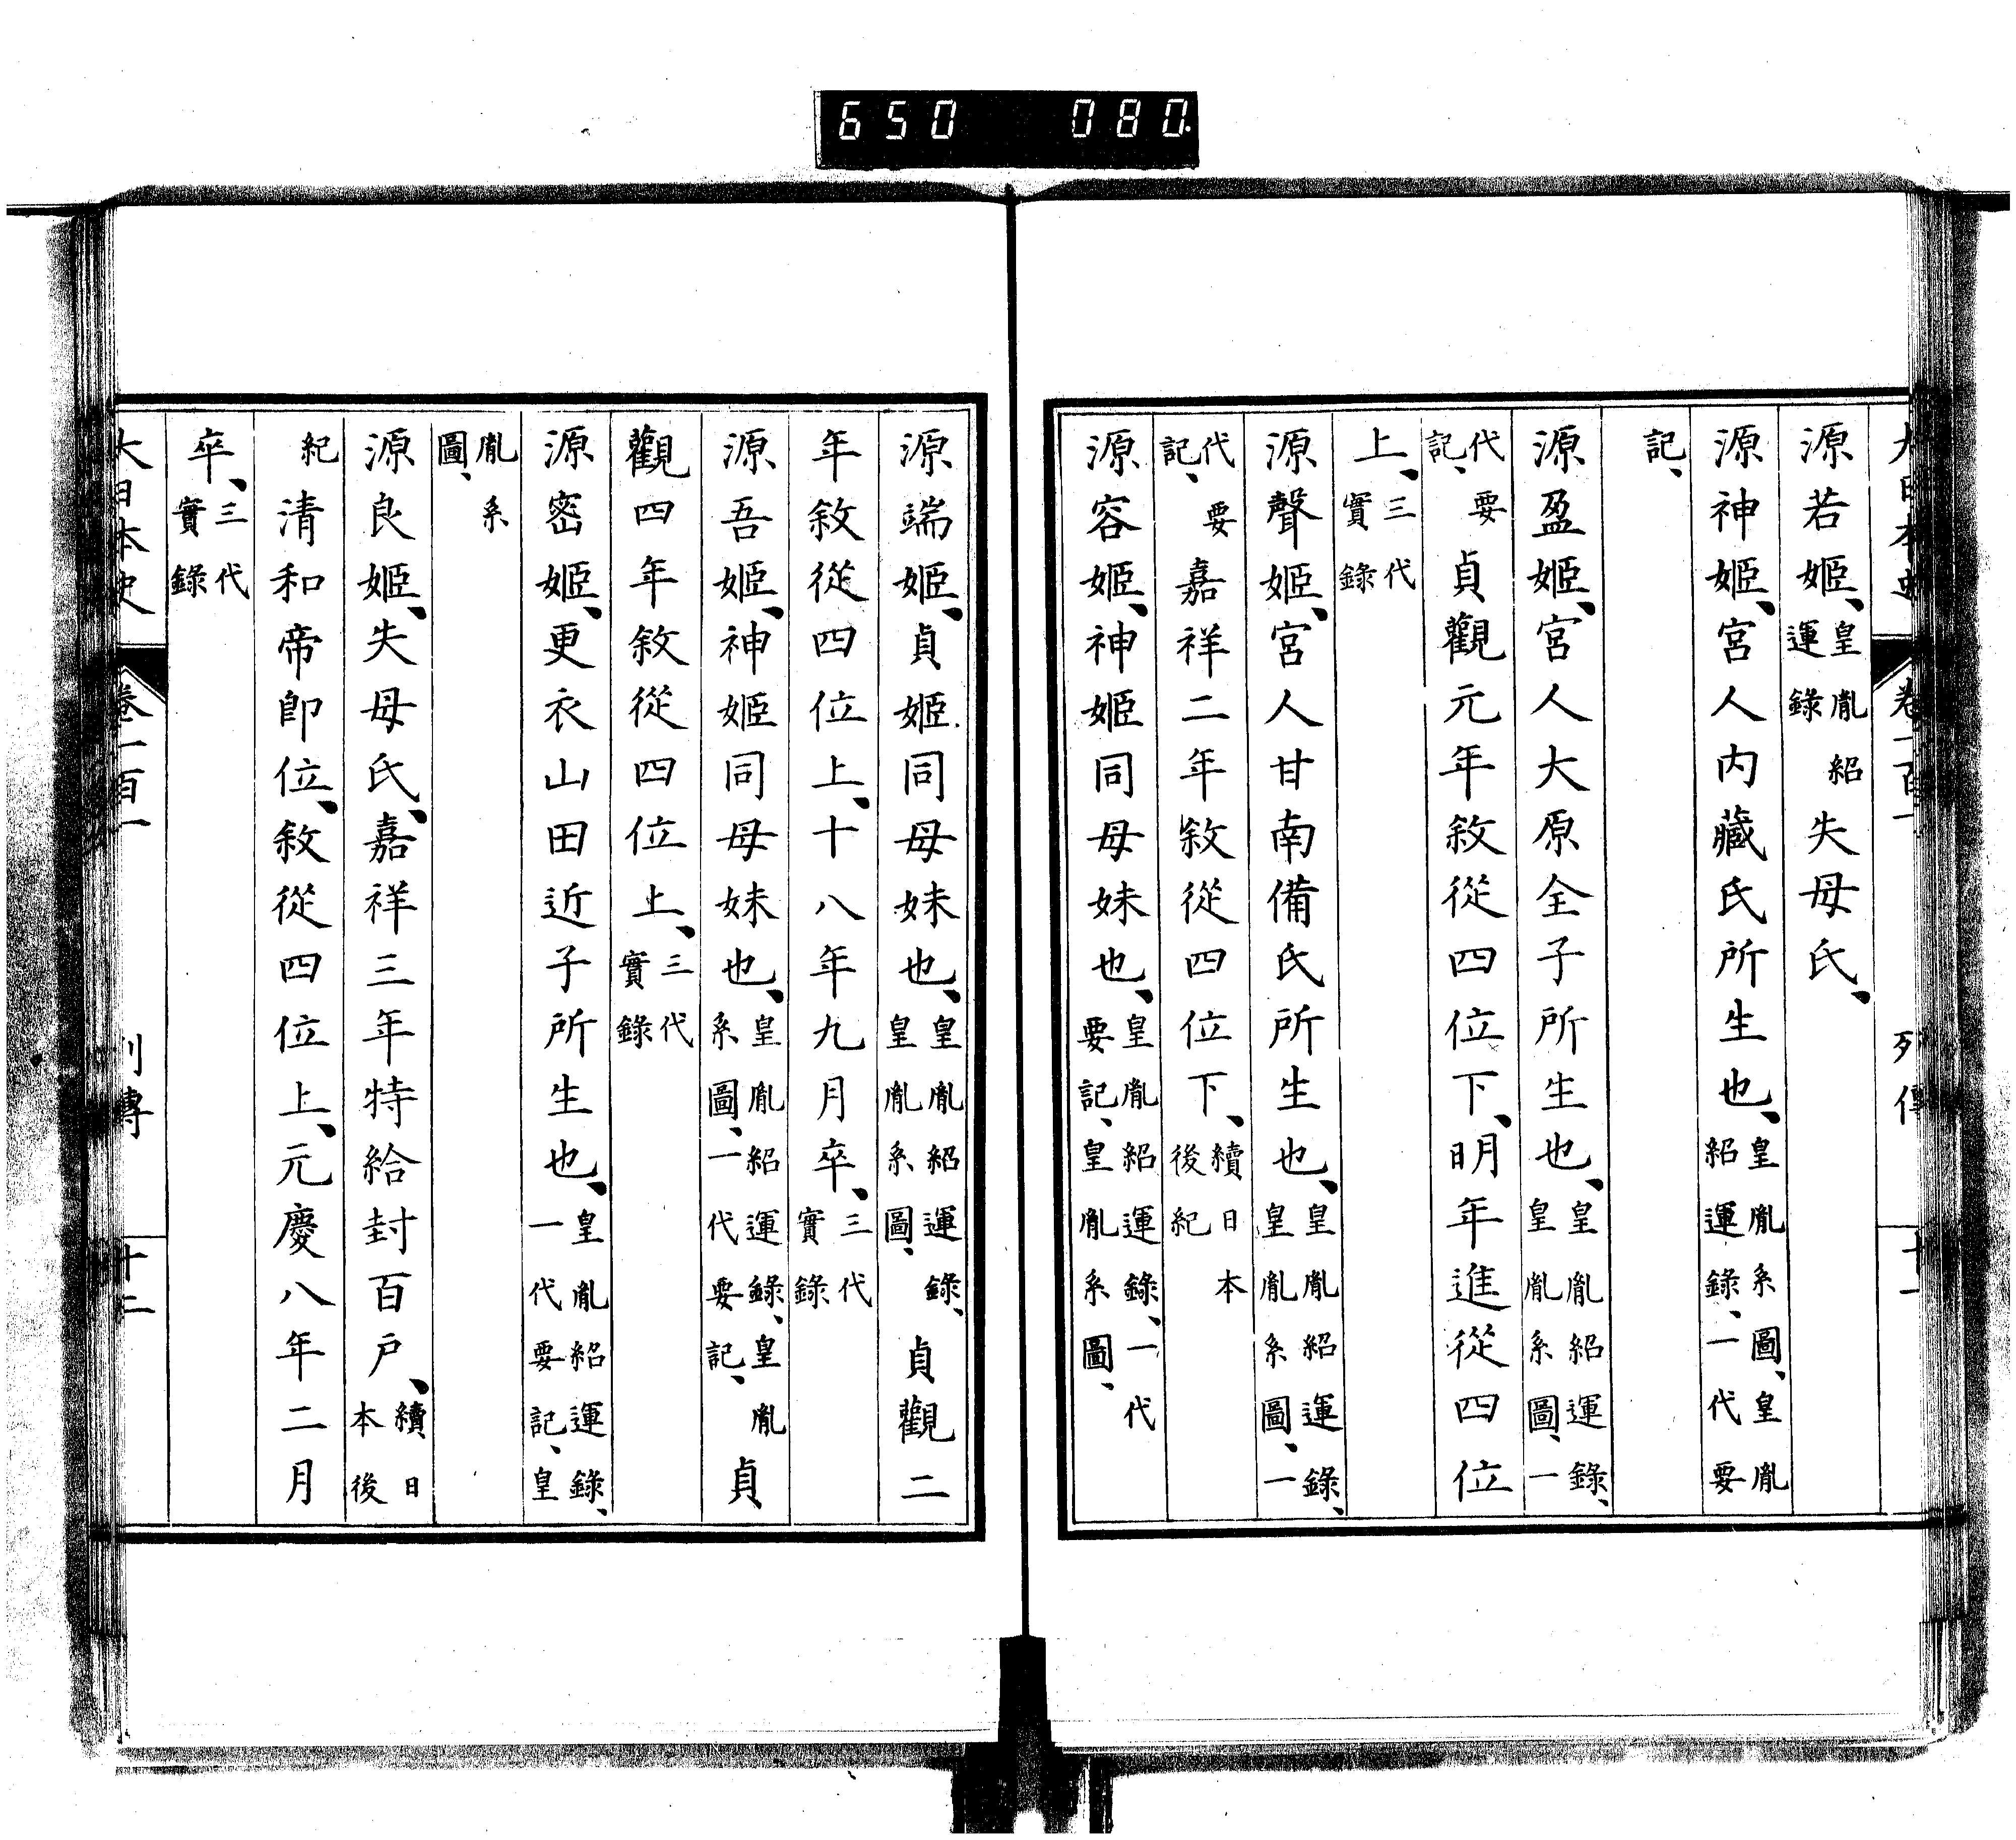 650 080.
大日本史 卷一百一 列傳 十一
源若姬、皇胤紹運錄失母氏、
源神姬、宮人內藏氏所生也、皇胤系圖、皇胤紹運錄、一代要
記、
源盈姬、宮人大原全子所生也、皇胤紹運錄、皇胤系圖、一
代要記、貞觀元年敘從四位下、明年進從四位
上、三代實錄
源聲姬、宮人甘南備氏所生也、皇胤紹運錄、皇胤系圖、一
代要記、嘉祥二年敘從四位下、續日本後紀
源容姬、神姬同母妹也、皇胤紹運錄、一代要記、皇胤系圖、
源端姬、貞姬同母妹也、皇胤紹運錄、皇胤系圖、貞觀二
年敘從四位上、十八年九月卒、三代實錄
源吾姬、神姬同母妹也、皇胤紹運錄、皇胤系圖、一代要記、貞
觀四年敘從四位上、三代實錄
源密姬、更衣山田近子所生也、皇胤紹運錄、一代要記、皇
胤系圖、
源良姬、失母氏、嘉祥三年特給封百戶、續日本後
紀清和帝卽位、敘從四位上、元慶八年二月
卒、三代實錄
大日本史 卷一百一 列傳 十二